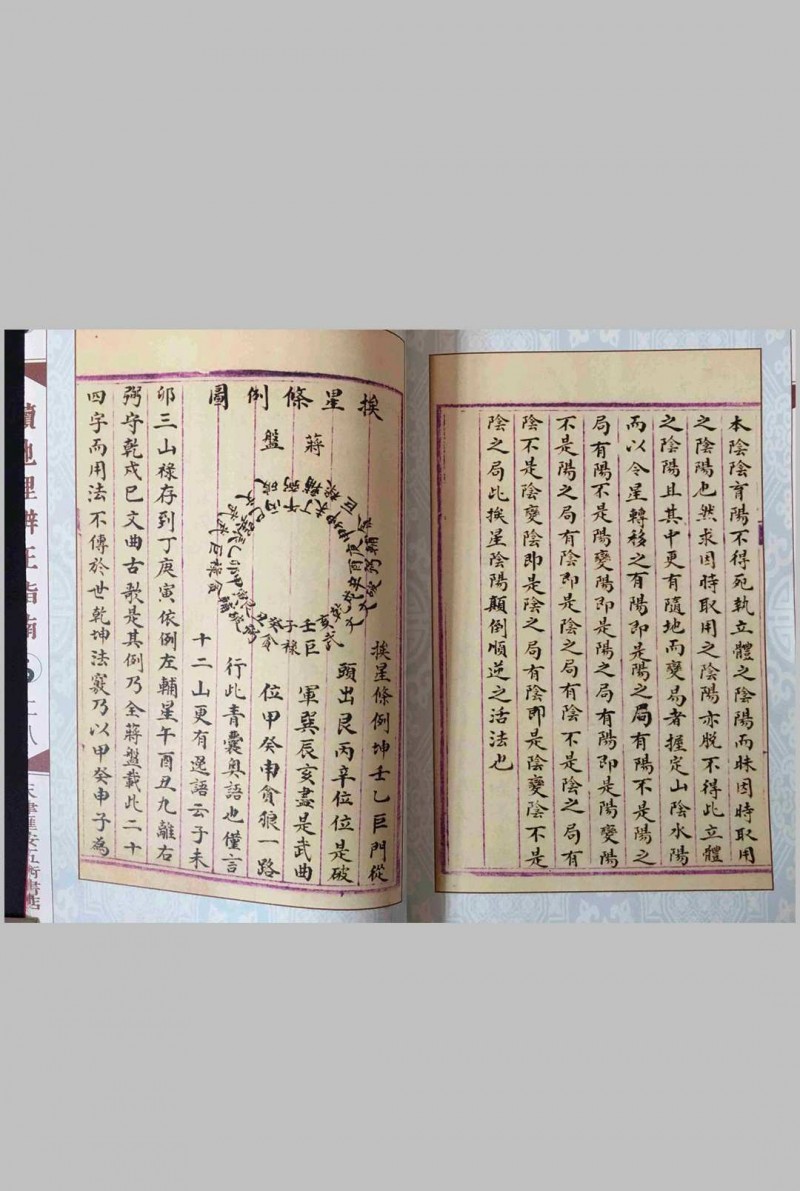 本陰陰育陽不得死執立體之陰陽而昧因時取用
之陰陽也然求因時取用之陰陽亦脫不得此立體
之陰陽且其中更有隨地而變易者握定山陰水陽
而以令星轉移之有陽即是陽之局有陽不是陽之
局有陽不是陽變陽即是陽之局有陽即是陽變陽
不是陽之局有陰即是陰之局有陰不是陰之局有
陰不是陰變陰即是陰之局有陰即是陰變陰不是
陰之局此挨星陰陽顛倒順逆之活法也
挨星條例圖
蔣盤
挨星條例坤壬乙巨門從
頭出艮丙辛位位是破
軍巽辰亥盡是武曲
位甲癸申貪狼一路
行此青囊奧語也僅言
十二山更有逸語云子未
卯三山祿存到丁庚寅依例左輔星午酉丑九離右
弼守乾戌巳文曲古歌是其例乃全蔣盤載此二十
四字而用法不傳於世乾坤法竅乃以甲癸申子為
壬巨
子祿
亥武
地理辯正指南
二八